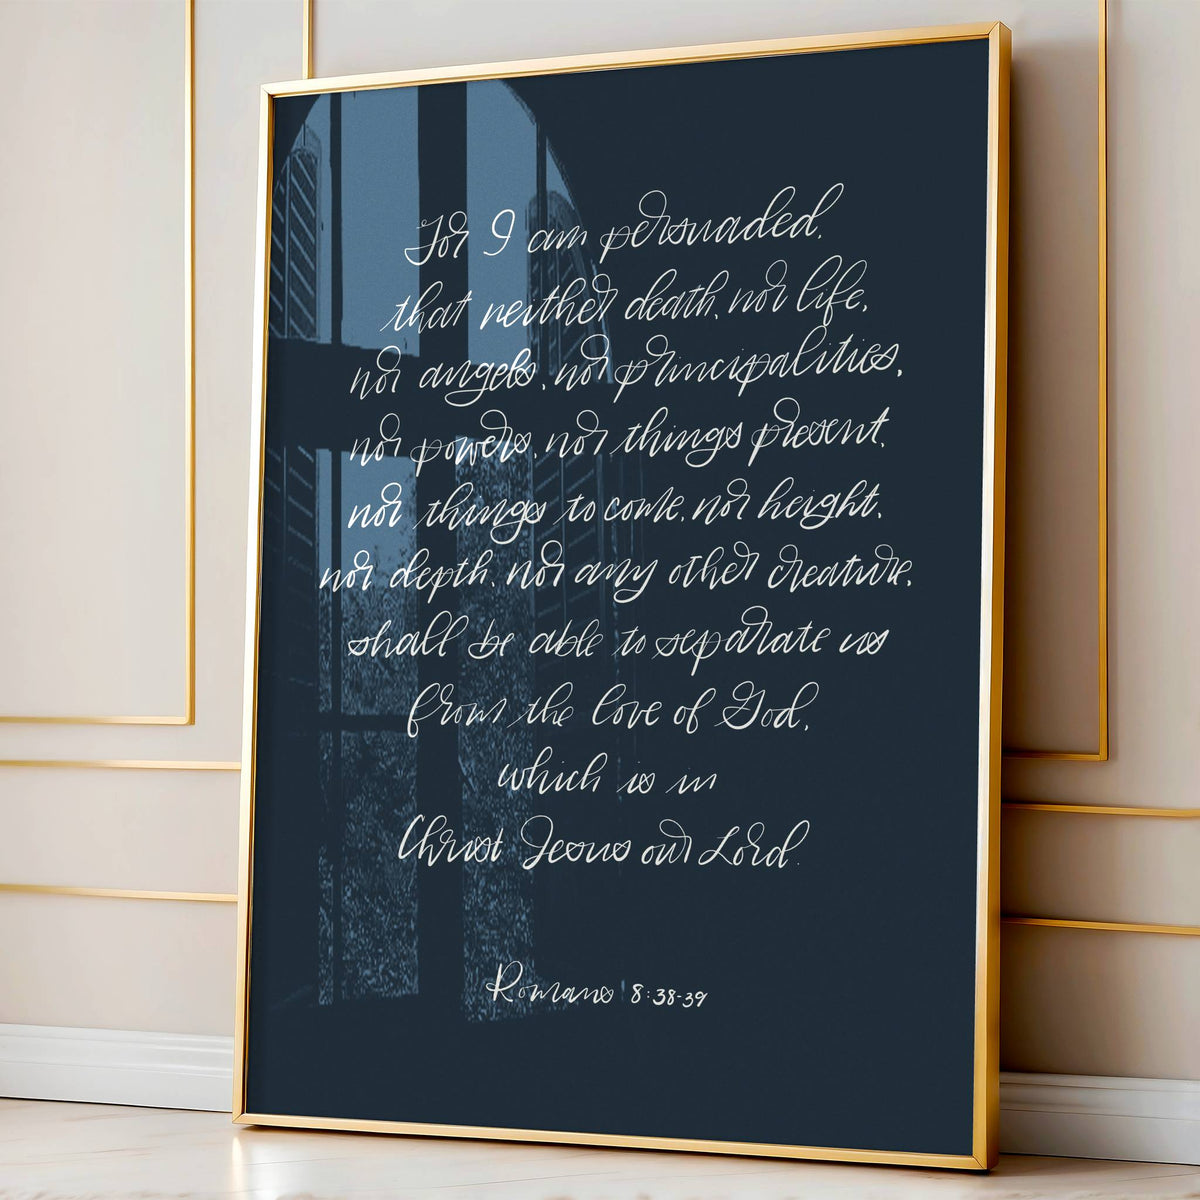 For I am persuaded,
that neither death, nor life,
nor angels, nor principalities,
nor powers, nor things present,
nor things to come, nor height,
nor depth, nor any other creature,
shall be able to separate us
from the love of God,
which is in
Christ Jesus our Lord.
Romans 8:38-39